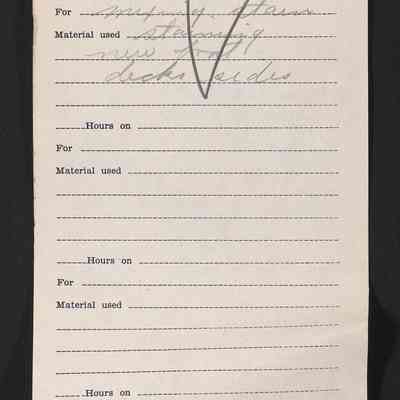 For mixing stain
Material used staining
new front
decks sides
Hours on
For
Material used
Hours on
For
Material used
Hours on